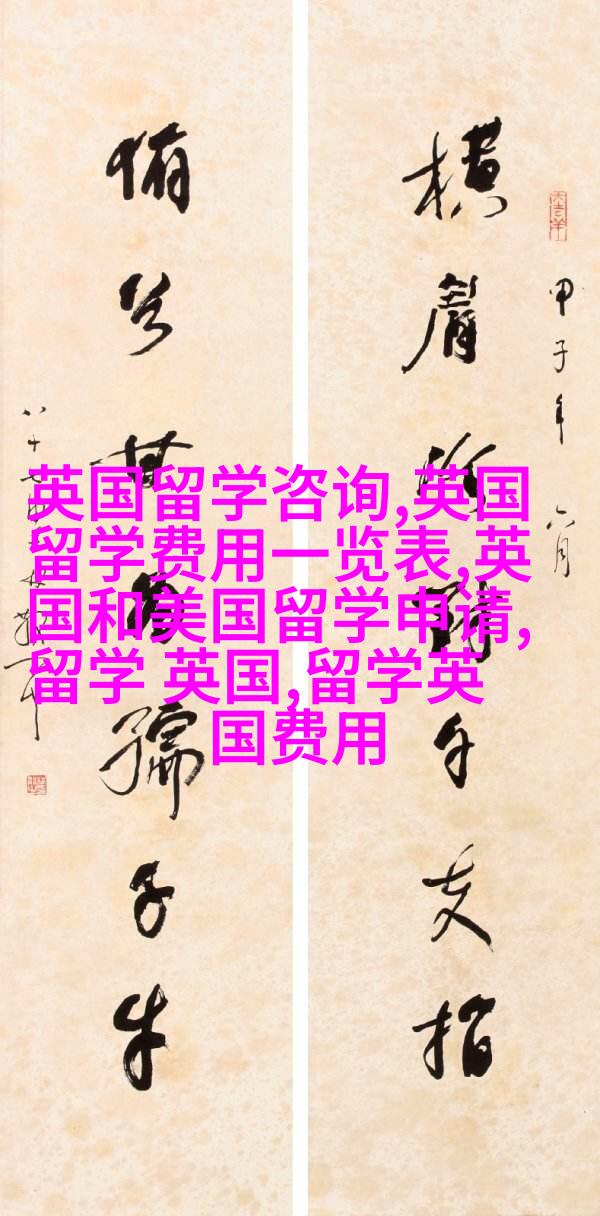 甲子年六月
橫眉冷對千夫指
俯首甘為孺子牛
英国留学咨询,英国
留学费用一览表,英
国和美国留学申请,
留学 英国,留学英
国费用